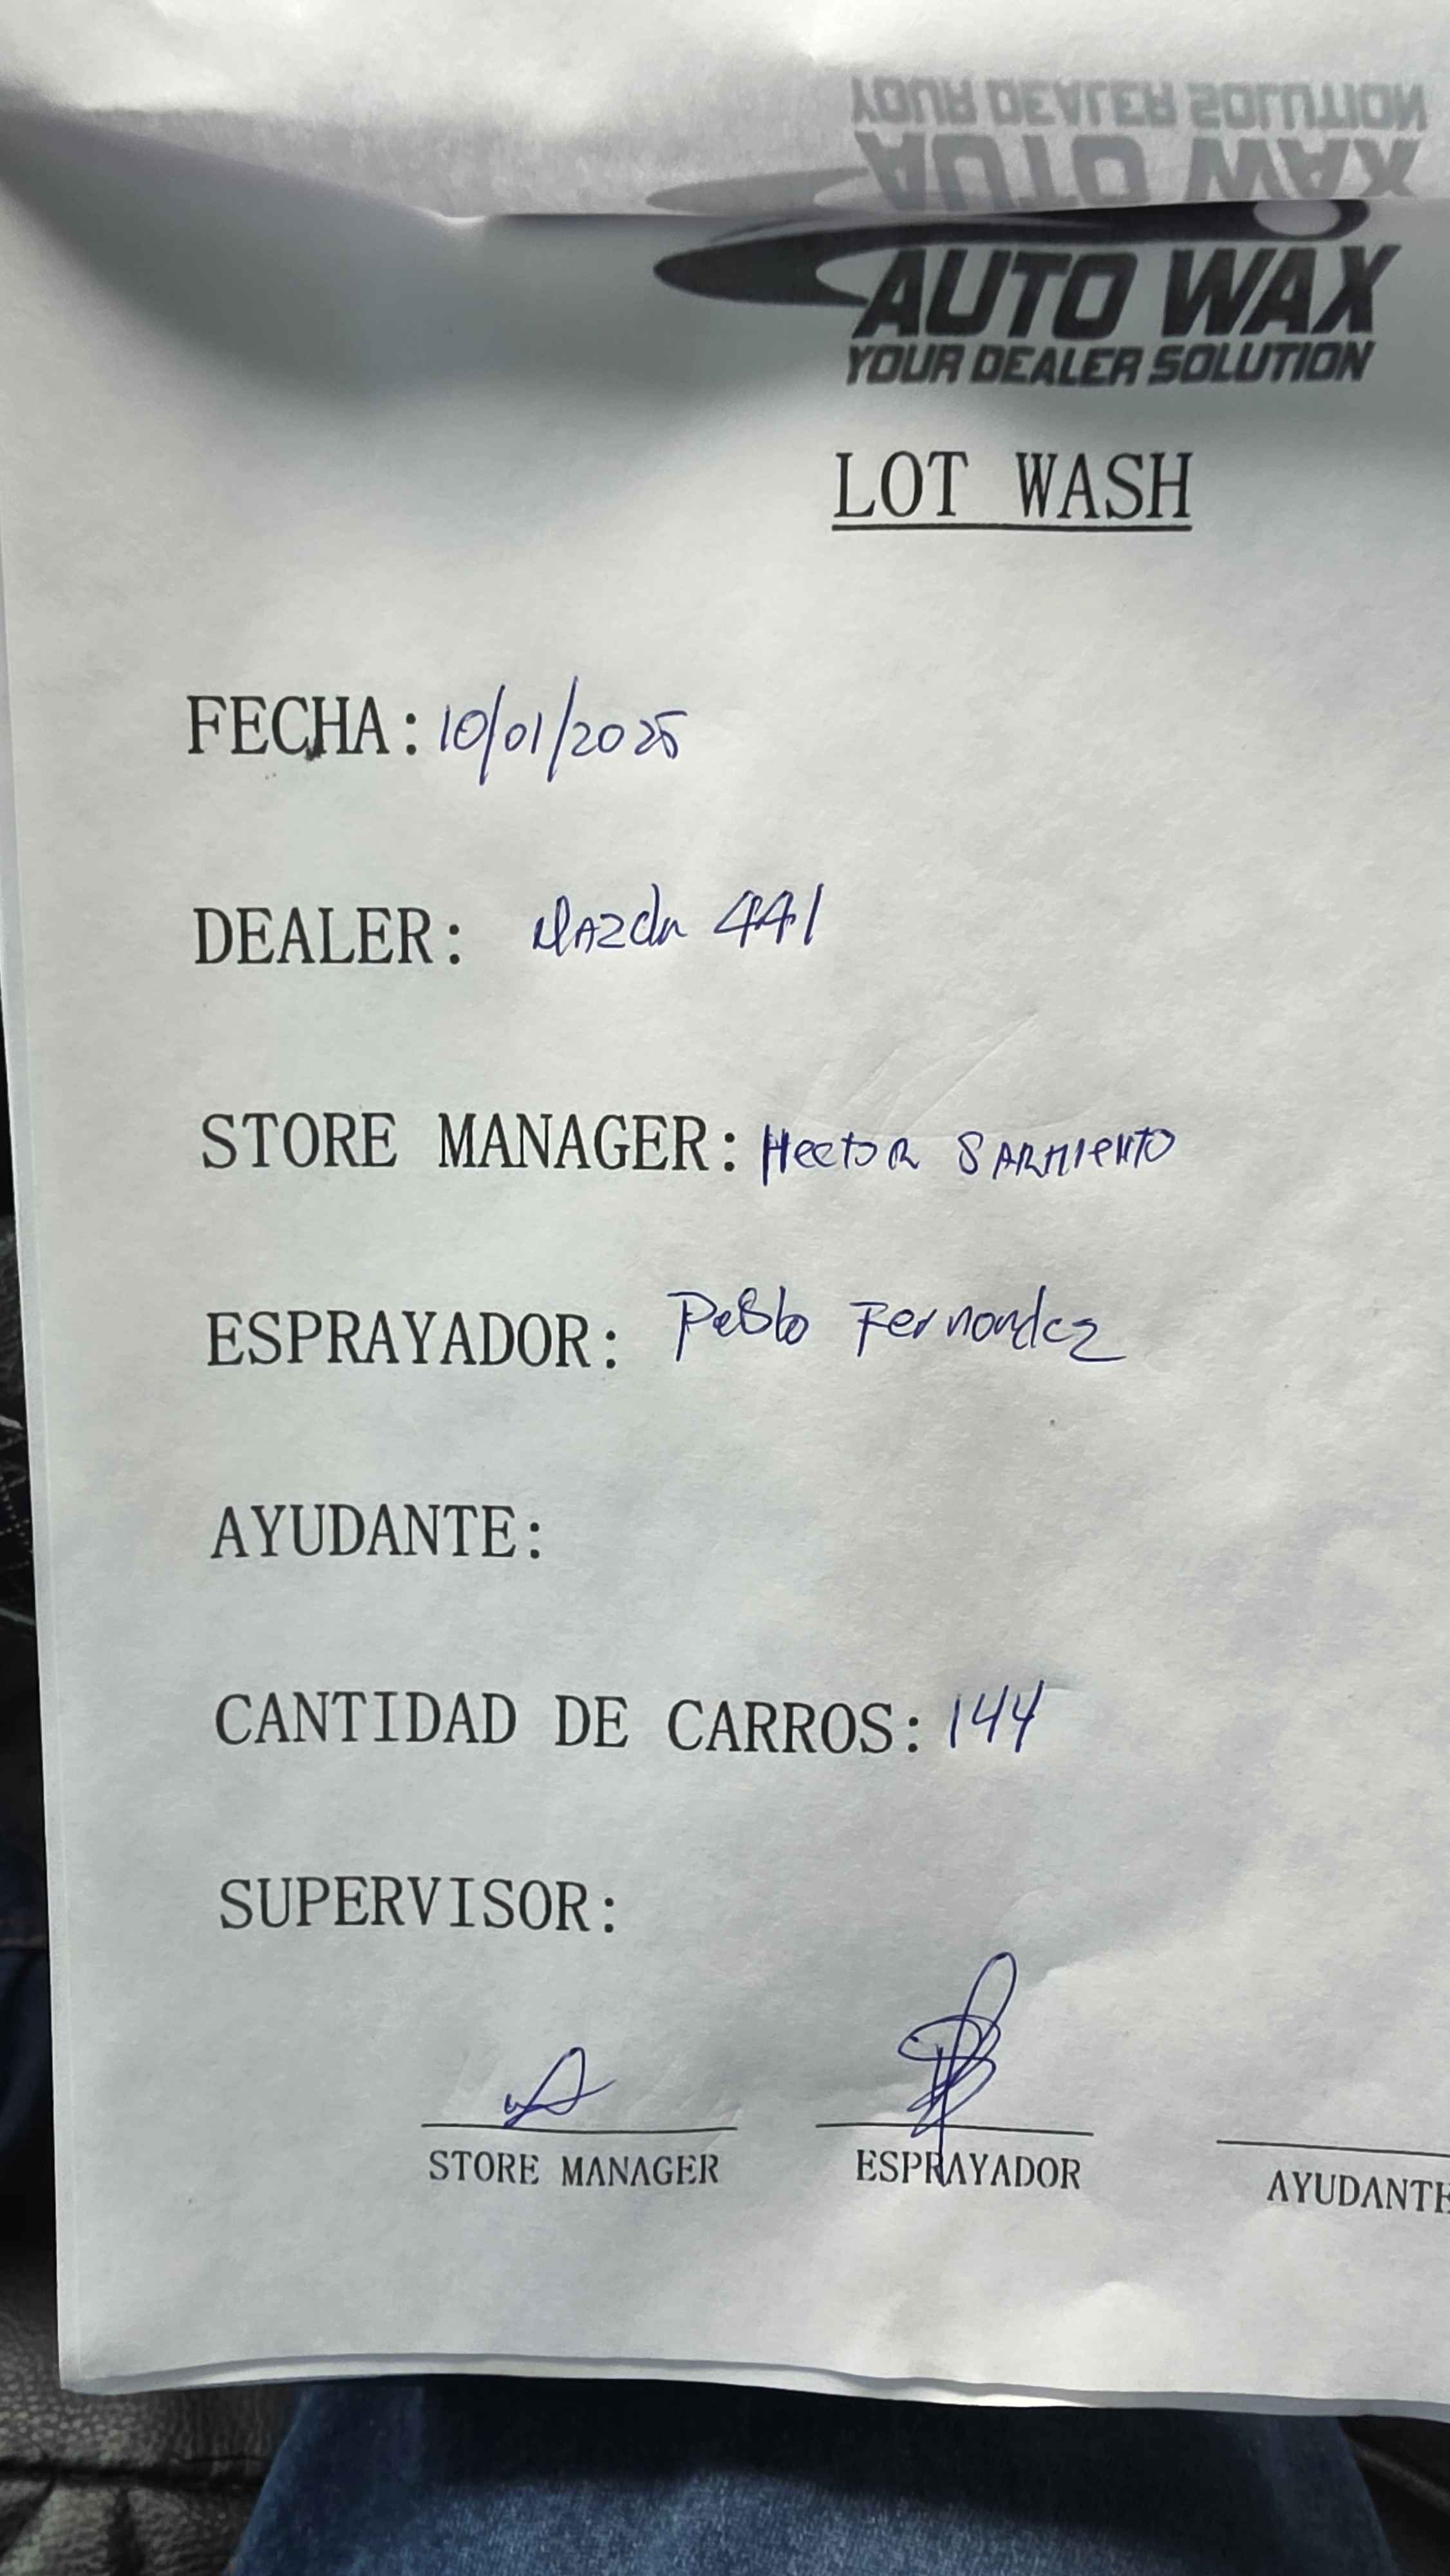 YOUR DEALER SOLUTION
AUTO WAX
AUTO WAX
YOUR DEALER SOLUTION
LOT WASH
FECHA: 10/01/2025
DEALER: Mazda 441
STORE MANAGER: Hector SARMIENTO
ESPRAYADOR: Pablo Fernandez
AYUDANTE:
CANTIDAD DE CARROS: 144
SUPERVISOR:
STORE MANAGER ESPRAYADOR AYUDANTE